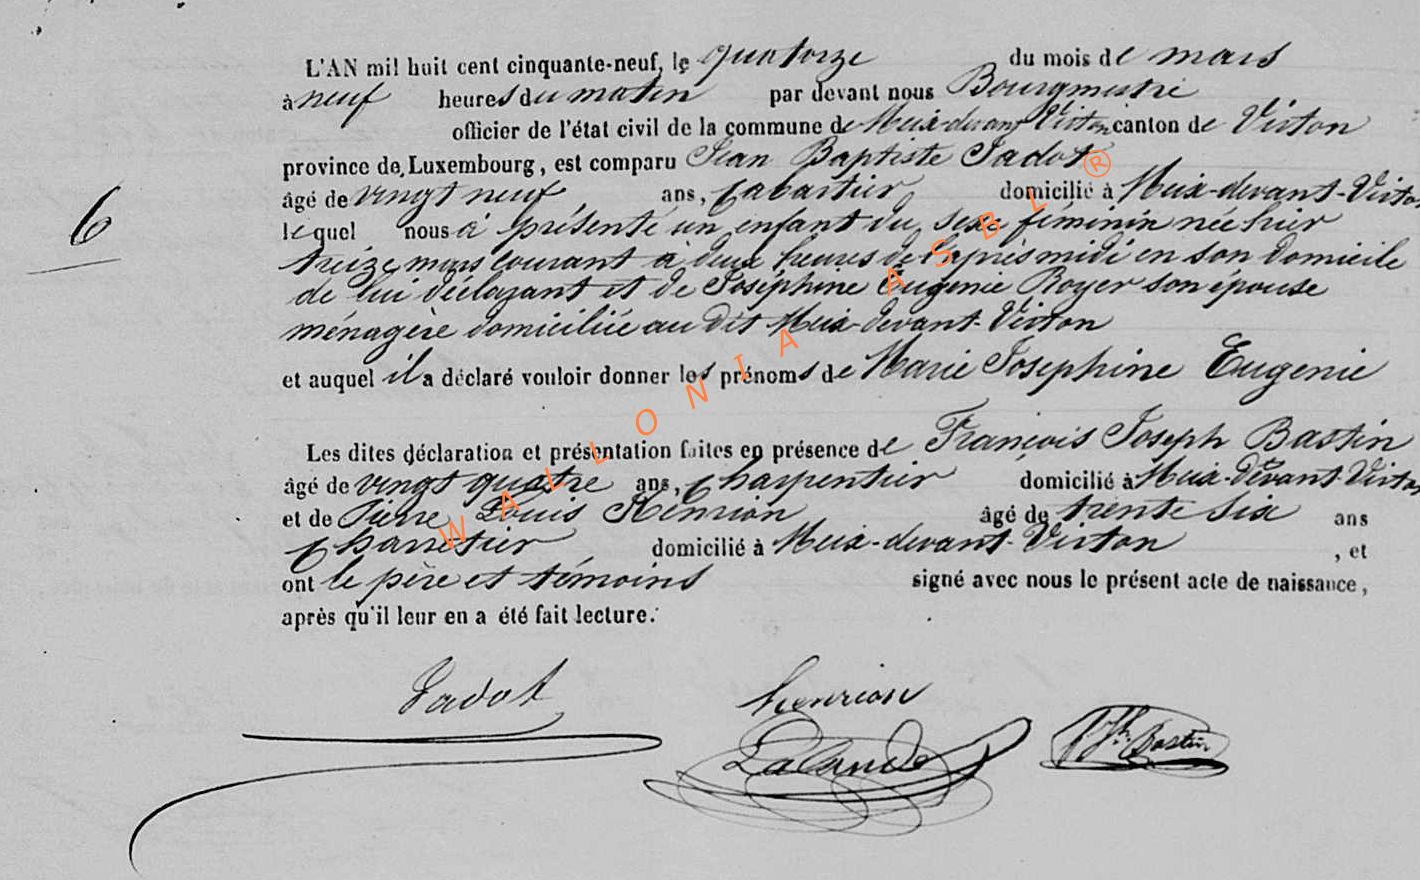 L'AN mil huit cent cinquante-neuf, le quatorze du mois de mars
à neuf heures du matin par devant nous Bourgmestre
officier de l'état civil de la commune de Meix-devant Virton canton de Virton
province de Luxembourg, est comparu Jean Baptiste Jadot
âgé de vingt neuf ans, Cabartier domicilié à Meix-devant-Virton
6
lequel nous à présenté un enfant du sexe féminin née hier
treize mars courant à deux heures de l'après midi en son domicile
de lui déclarant et de Joséphine Eugenie Royer son épouse
ménagère domiciliée au dit Meix-devant-Virton
et auquel il a déclaré vouloir donner les prénoms de Marie Josephine Eugenie
Les dites déclaration et présentation faites en présence de François Joseph Bastin
âgé de vingt quatre ans, Charpentier domicilié à Meix-devant-Virton
et de Pierre Louis Henrion âgé de trente six ans
Charretier domicilié à Meix-devant-Virton , et
ont le père et témoins signé avec nous le présent acte de naissance,
après qu'il leur en a été fait lecture.
WALLONIA ASBL ®
Jadot henrion
Bastin